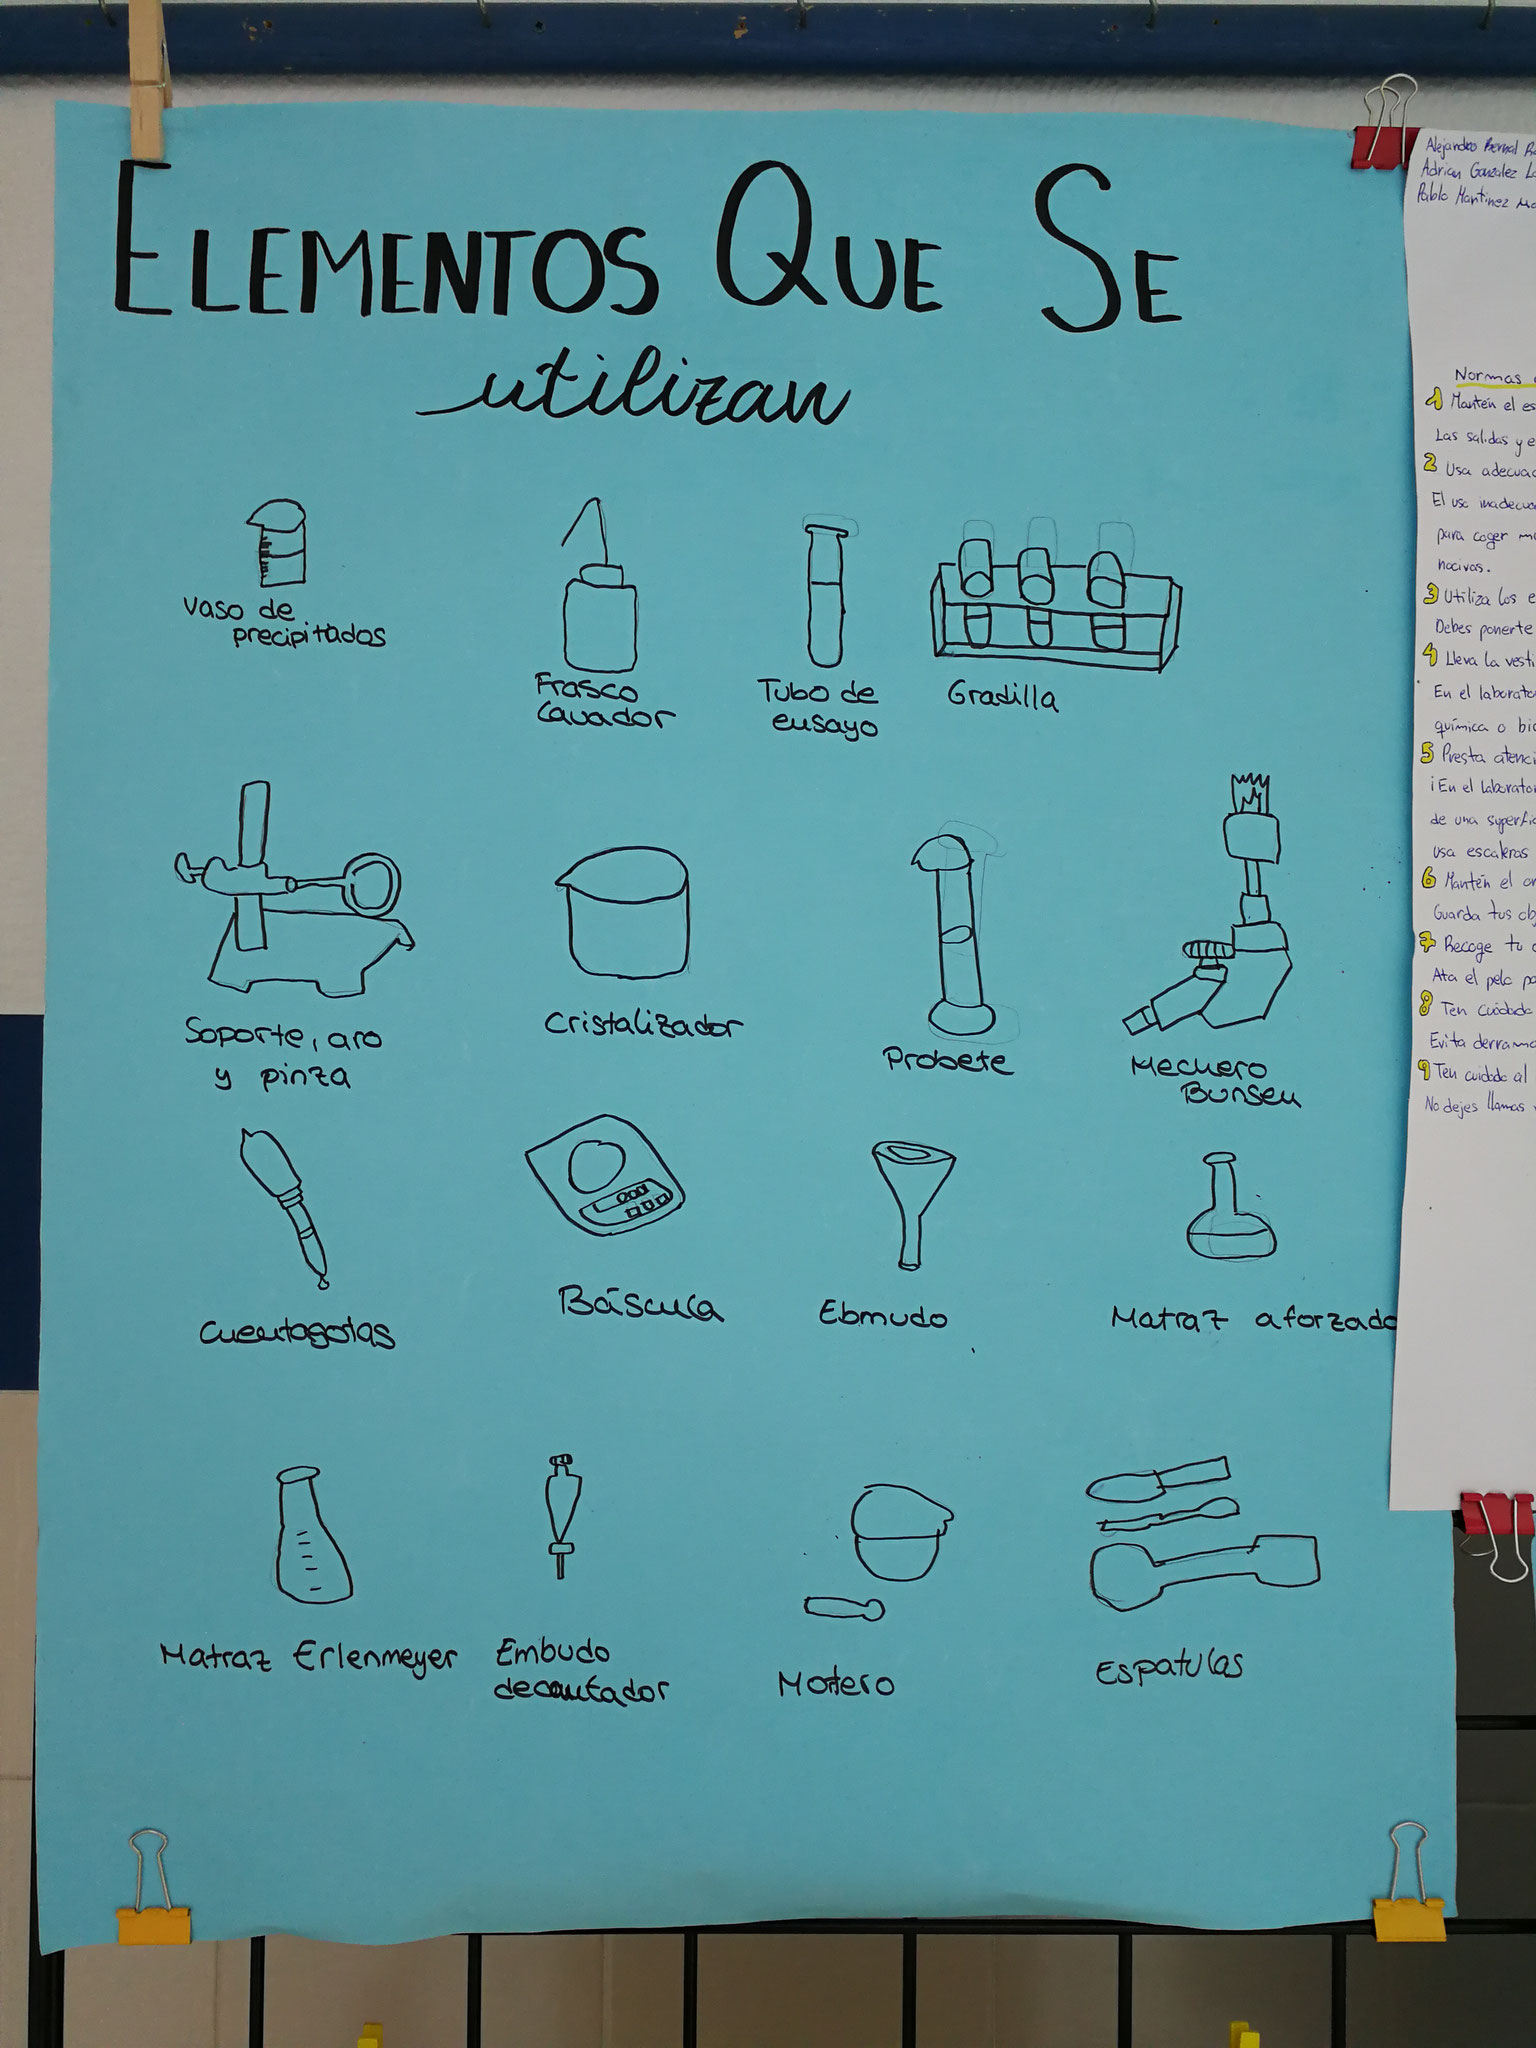 ELEMENTOS QUE SE
utilizan
Vaso de
precipitados
Frasco
Lavador
Tubo de
ensayo
Gradilla
Soporte, aro
y pinza
Cristalizador
Probete
Mechero
Bunsen
Cuentagotas
Báscula
Ebmudo
Matraz aforzado
Matraz Erlenmeyer
Embudo
decantador
Motero
Espatulas
Alejandro Bernal
Adrian Gonzalez
Pablo Martinez
Normas
1 Mantén el
Las salidas y
2 Usa
El uso
para coger
nocivas.
3 Utiliza los
Debes ponerte
4 Lleva la
En el
química o
5 Presta
¡En el
de una
usa escaleras
6 Mantén el
Guarda tus
7 Recoge tu
Ata el pelo
8 Ten cuidado
Evita
9 Ten cuidado al
No dejes llamas